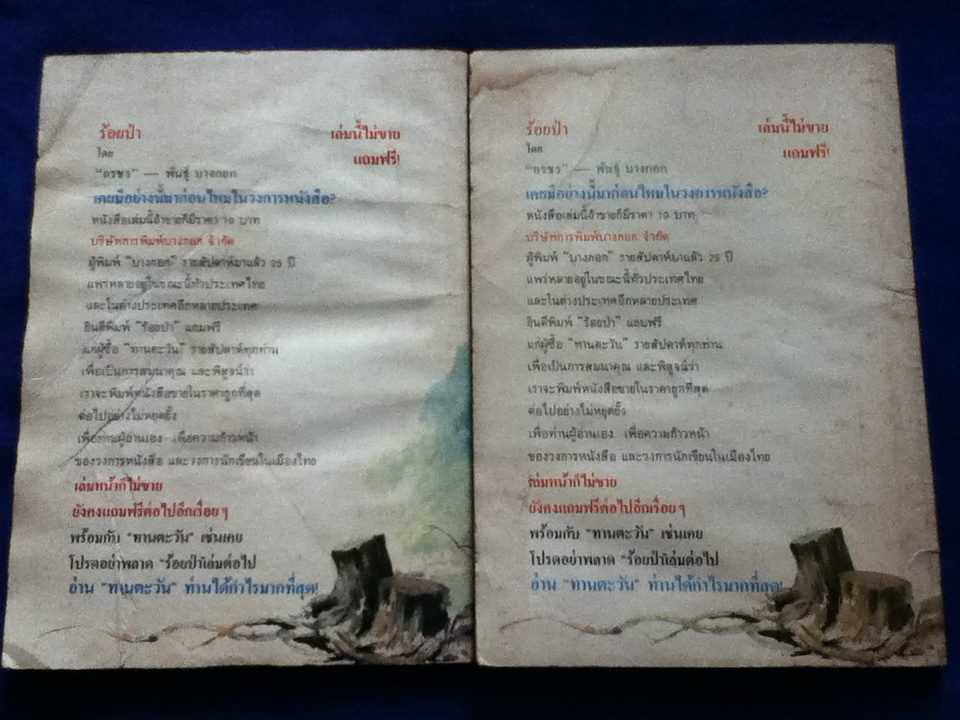 ร้อยป่า
เล่มนี้ไม่ขาย
โดย
แถมฟรี!
"อรชร" — พันธุ์ บางกอก
เคยมีอย่างนี้มาก่อนไหมในวงการหนังสือ?
หนังสือเล่มนี้ถ้าขายก็มีราคา 10 บาท
บริษัทการพิมพ์บางกอก จำกัด
ผู้พิมพ์ "บางกอก" รายสัปดาห์มาแล้ว 25 ปี
แพร่หลายอยู่ในขณะนี้ทั่วประเทศไทย
และในต่างประเทศอีกหลายประเทศ
ยินดีพิมพ์ "ร้อยป่า" แถมฟรี
แก่ผู้ซื้อ "ทานตะวัน" รายสัปดาห์ทุกท่าน
เพื่อเป็นการสมนาคุณ และพิสูจน์ว่า
เราจะพิมพ์หนังสือขายในราคาถูกที่สุด
ต่อไปอย่างไม่หยุดยั้ง
เพื่อท่านผู้อ่านเอง เพื่อความก้าวหน้า
ของวงการหนังสือ และวงการนักเขียนในเมืองไทย
เล่มหน้าก็ไม่ขาย
ยังคงแถมฟรีต่อไปอีกเรื่อย ๆ
พร้อมกับ "ทานตะวัน" เช่นเคย
โปรดอย่าพลาด "ร้อยป่า" เล่มต่อไป
อ่าน "ทานตะวัน" ท่านได้กำไรมากที่สุด!
ร้อยป่า
เล่มนี้ไม่ขาย
โดย
แถมฟรี!
"อรชร" — พันธุ์ บางกอก
เคยมีอย่างนี้มาก่อนไหมในวงการหนังสือ?
หนังสือเล่มนี้ถ้าขายก็มีราคา 10 บาท
บริษัทการพิมพ์บางกอก จำกัด
ผู้พิมพ์ "บางกอก" รายสัปดาห์มาแล้ว 25 ปี
แพร่หลายอยู่ในขณะนี้ทั่วประเทศไทย
และในต่างประเทศอีกหลายประเทศ
ยินดีพิมพ์ "ร้อยป่า" แถมฟรี
แก่ผู้ซื้อ "ทานตะวัน" รายสัปดาห์ทุกท่าน
เพื่อเป็นการสมนาคุณ และพิสูจน์ว่า
เราจะพิมพ์หนังสือขายในราคาถูกที่สุด
ต่อไปอย่างไม่หยุดยั้ง
เพื่อท่านผู้อ่านเอง เพื่อความก้าวหน้า
ของวงการหนังสือ และวงการนักเขียนในเมืองไทย
เล่มหน้าก็ไม่ขาย
ยังคงแถมฟรีต่อไปอีกเรื่อย ๆ
พร้อมกับ "ทานตะวัน" เช่นเคย
โปรดอย่าพลาด "ร้อยป่า" เล่มต่อไป
อ่าน "ทานตะวัน" ท่านได้กำไรมากที่สุด!